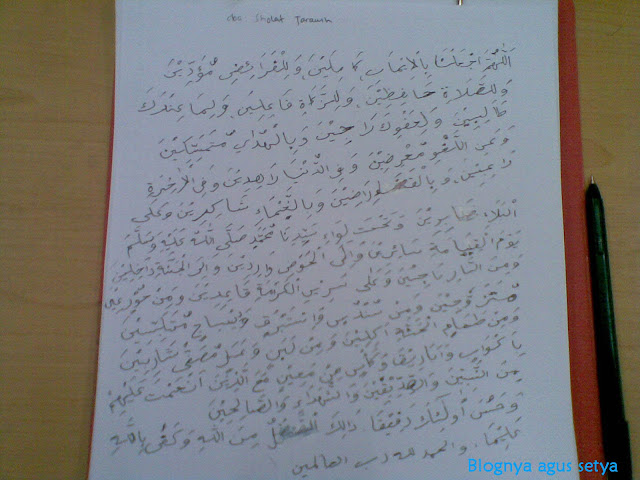 Sholat Tarawih
اَللّٰهُمَّ اجْعَلْنَا بِالْاِيْمَانِ كَامِلِيْنَ وَلِلْفَرَائِضِ مُؤَدِّيْنَ
وَلِلصَّلَاةِ حَافِظِيْنَ وَلِلزَّكَاةِ فَاعِلِيْنَ وَلِمَا عِنْدَكَ
طَالِبِيْنَ وَلِعَفْوِكَ رَاجِيْنَ وَبِالْهُدَى مُتَمَسِّكِيْنَ
وَعَنِ اللَّغْوِ مُعْرِضِيْنَ وَفِى الدُّنْيَا زَاهِدِيْنَ وَفِى الْاٰخِرَةِ
رَاغِبِيْنَ وَبِالْقَضَاءِ رَاضِيْنَ وَبِالنَّعْمَاءِ شَاكِرِيْنَ وَعَلَى
الْبَلَاءِ صَابِرِيْنَ وَتَحْتَ لِوَاءِ سَيِّدِنَا مُحَمَّدٍ صَلَّى اللهُ عَلَيْهِ وَسَلَّمَ
يَوْمَ الْقِيَامَةِ سَائِرِيْنَ وَاِلَى الْحَوْضِ وَارِدِيْنَ وَاِلَى الْجَنَّةِ دَاخِلِيْنَ
وَمِنَ النَّارِ نَاجِيْنَ وَعَلَى سَرِيْرِ الْكَرَامَةِ قَاعِدِيْنَ وَمِنْ حُوْرٍ عِيْنٍ
مُتَزَوِّجِيْنَ وَمِنْ سُنْدُسٍ وَاِسْتَبْرَقٍ وَدِيْبَاجٍ مُتَلَبِّسِيْنَ
وَمِنْ طَعَامِ الْجَنَّةِ آكِلِيْنَ وَمِنْ لَبَنٍ وَعَسَلٍ مُصَفًّى شَارِبِيْنَ
بِاَكْوَابٍ وَاَبَارِيْقَ وَكَأْسٍ مِنْ مَعِيْنٍ مَعَ الَّذِيْنَ اَنْعَمْتَ عَلَيْهِمْ
مِنَ النَّبِيِّيْنَ وَالصِّدِّيْقِيْنَ وَالشُّهَدَاءِ وَالصَّالِحِيْنَ
وَحَسُنَ اُولٰئِكَ رَفِيْقًا ذَالِكَ الْفَضْلُ مِنَ اللهِ وَكَفَى بِاللهِ
عَلِيْمًا. والحمد لله رب العالمين
Blognya agus setya